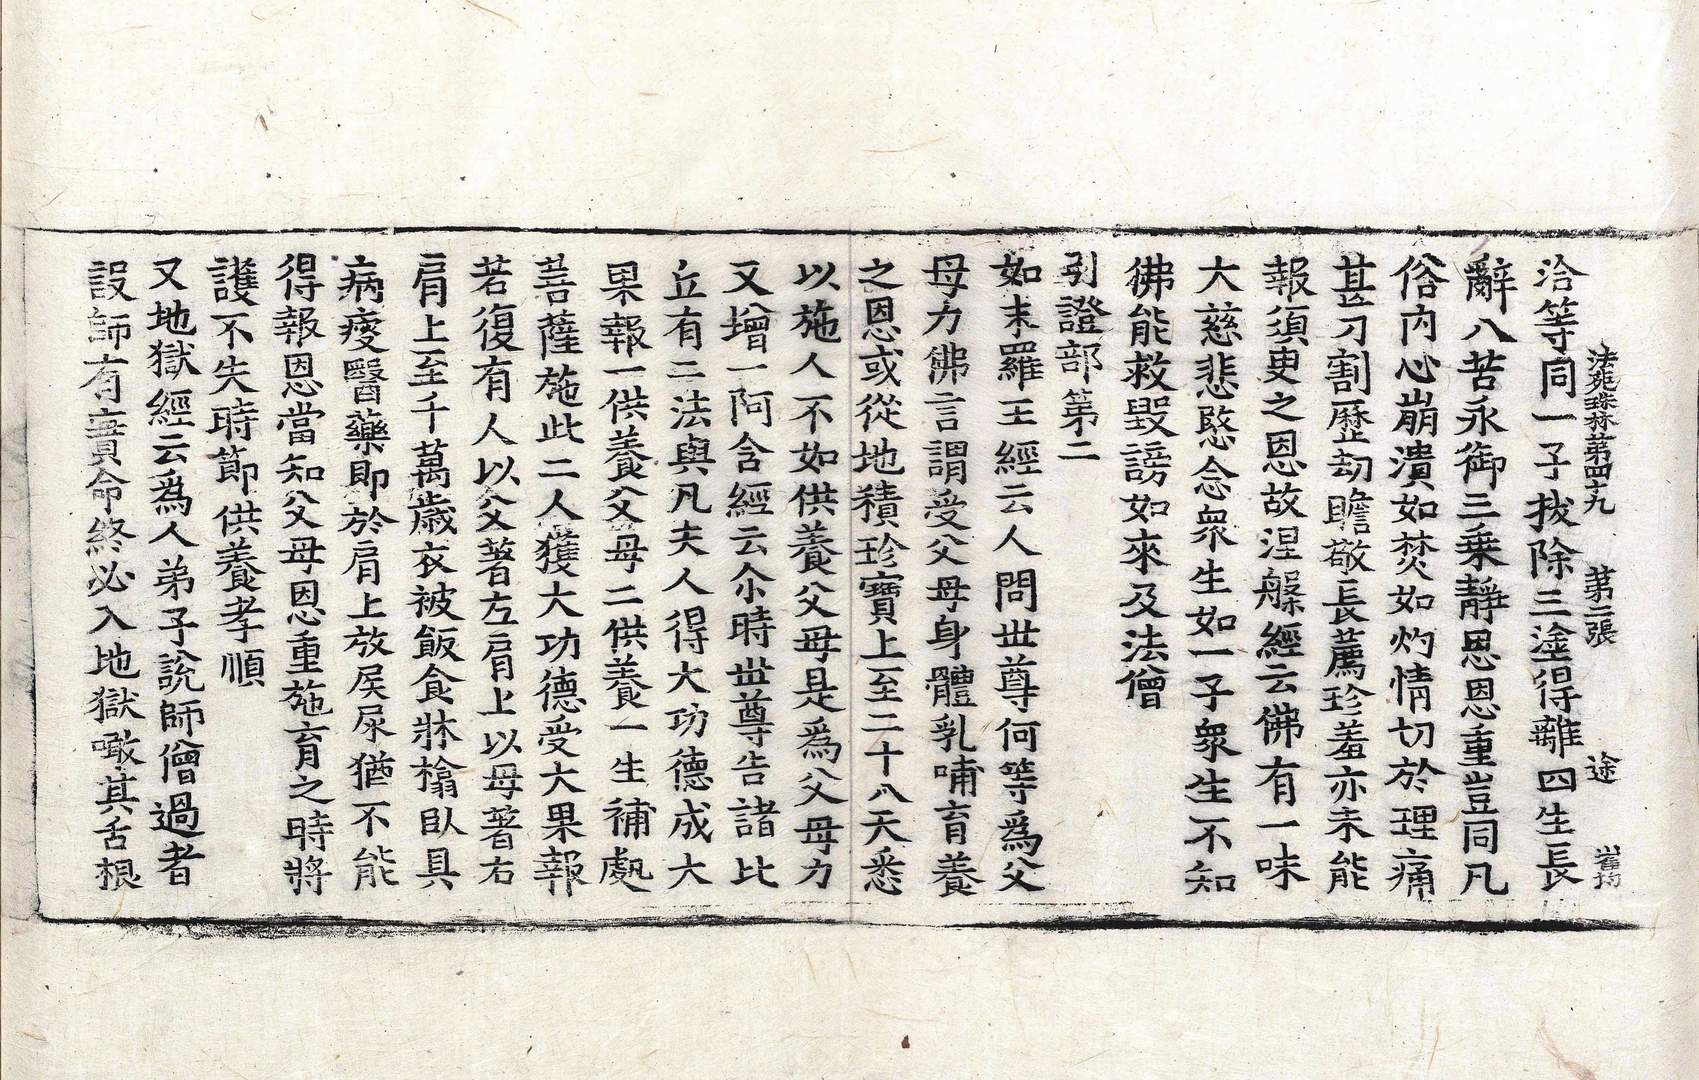 法苑珠林第四十九 第二張 途
洽等同一子拔除三塗得離四生長
辭八苦永御三乗靜恩恩重豈同凡
俗内心崩潰如焚如灼情切於理痛
甚刀割歷劫瞻敬長薦珍羞亦未能
報須臾之恩故涅槃經云佛有一味
大慈悲愍念衆生如一子衆生不知
佛能救毀謗如來及法僧
引證部第二
如末羅王經云人問世尊何等為父
母力佛言謂受父母身體乳哺育養
之恩或從地積珍寶上至二十八天悉
以施人不如供養父母是為父母力
又增一阿含經云尒時世尊告諸比
丘有二法與凡夫人得大功德成大
果報一供養父母二供養一生補處
菩薩施此二人獲大功德受大果報
若復有人以父著左肩上以母著右
肩上至千萬歲衣被飯食牀榻臥具
病瘦醫藥即於肩上放屎尿猶不能
得報恩當知父母恩重施育之時將
護不失時節供養孝順
又地獄經云為人弟子說師僧過者
設師有實命終必入地獄噉其舌根